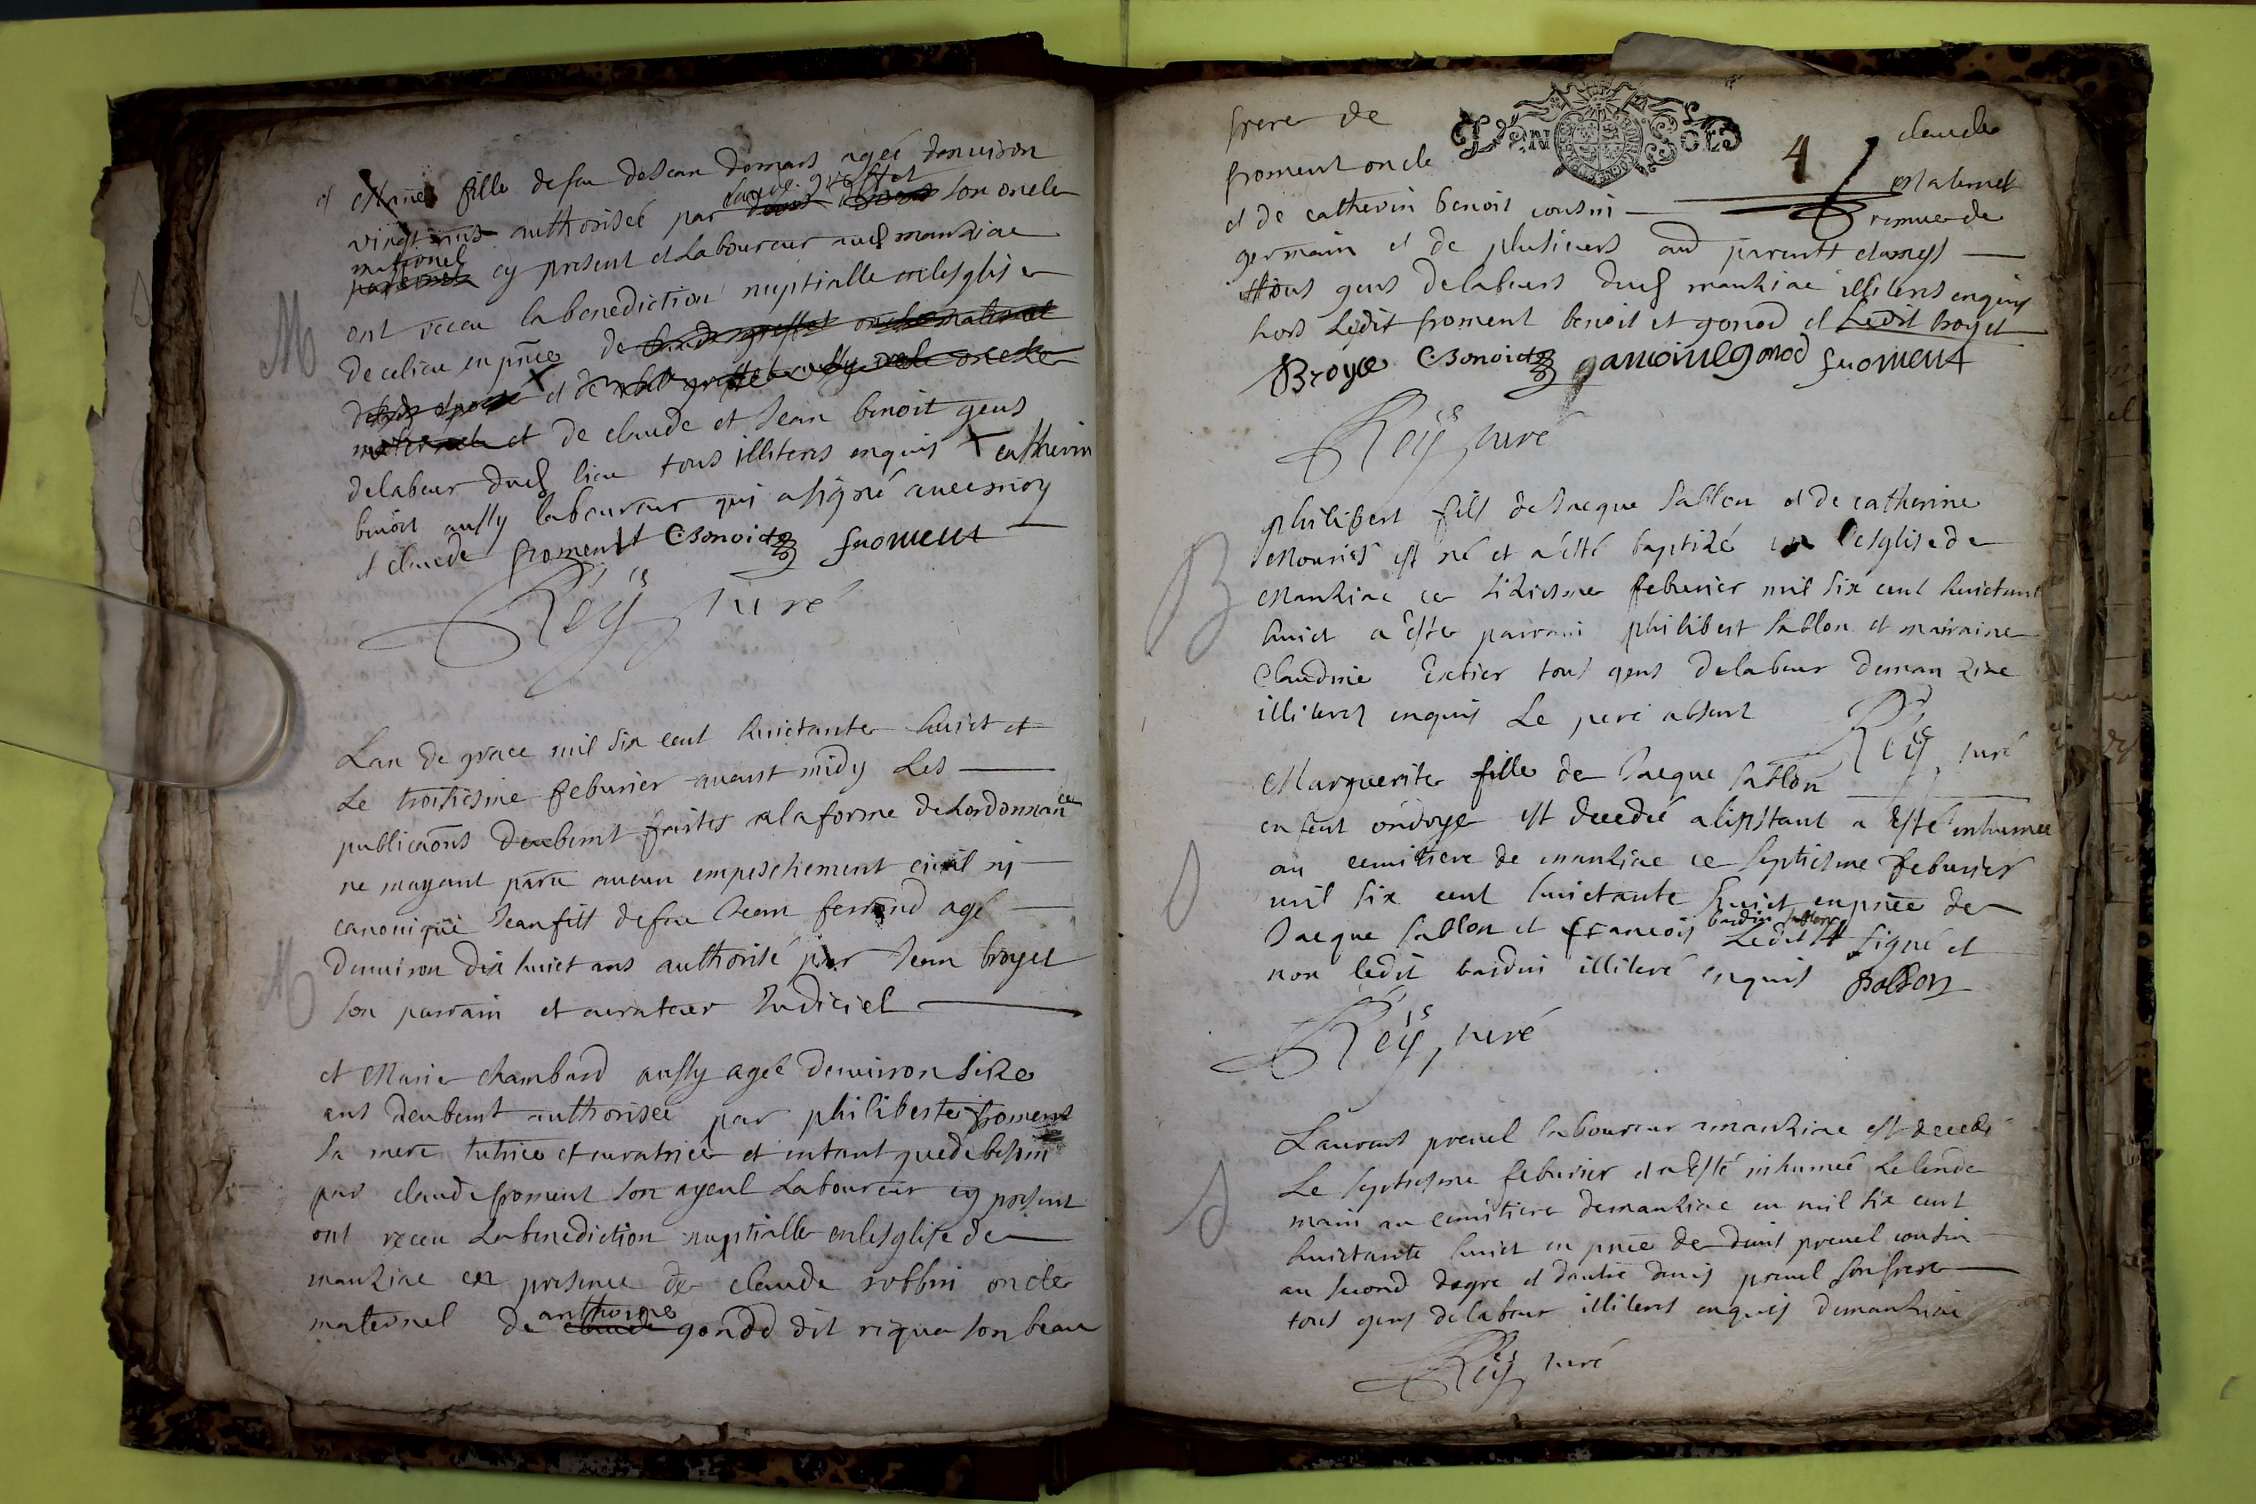 et Anne fille defeu deJean Demars ageé denuiron
vingt ans authoriseé par claude greffet son oncle
maternel cy present et Laboureur aud manziac
ont receu la benediction nuptialle enlesglise
M
de celieu en pnce de claude greffet oncle maternel
X et de greffet aussy oncle
maternel et de claude et Jean benoit gens
delabeur dud lieu tous illiteres enquis X catherin
benoit aussy laboureur qui a signé auec moy
et claude froment CBenoict froment
Reÿ curé
Lan de grace mil six cent huictante huict et
Le troisiesme feburier auant midy Les
publicaons deubemt faites a la forme de Lordonnance
ne mayant paru aucun empeschement ciuil ni
canonique Jean fils defeu Jean ferrand agé
M
denuiron dix huict ans authorisé par Jean broyet
son parrain et curateur Judiciel
et Marie chambard aussy ageé denuiron sike
ans deubemt authoriseé par philiberte froment
sa mere tutrice et curatrice et entant que de besoin
par claude froment son ayeul Laboureur cy present
ont receu La benediction nuptialle enlesglise de
manziac en presence de claude robbin oncle
maternel de anthoine claude gonod dit rique son beau
frere de claude
4
froment oncle maternel
et de catherin benoit cousin remue de
germain et de plusieurs aud parents et amys
tous gens delabeurs dud manziac illiteres enquis
hors Ledit froment benoit et gonod et Ledit broyet
Broyé CBenoict gonod froment
Reÿ curé
philibert fils de Jacque sablon et de catherine
Mourier est né et a esté baptizé en lesglise de
B
Manziac ce sixiesme feburier mil six cent huictante
huict a esté parrain philibert sablon et marraine
Claudine Extier tous gens delabeur demanziac
illiteres enquis Le pere absent
Reÿ curé
Marguerite fille de Jacque sablon
enfent ondoyé est decedeé alinstant a esté inhumeé
au cemitiere de manziac ce septiesme feburier
mil six cent huictante huict en pnce de
Jacque sablon et françois bardin Ledit sablon a signé et
non ledit bardin illiteré enquis sablon
Reÿ curé
Laurent preuel laboureur a manziac est decedé
Le septiesme feburier et a esté inhumeé Lelende
main au cemitiere demanziac en mil six cent
huictante huict en pnce de denis preuel cousin
au second degre et dautre denis preuel son frere
tous gens delabeur illiteres enquis demanziac
Reÿ curé